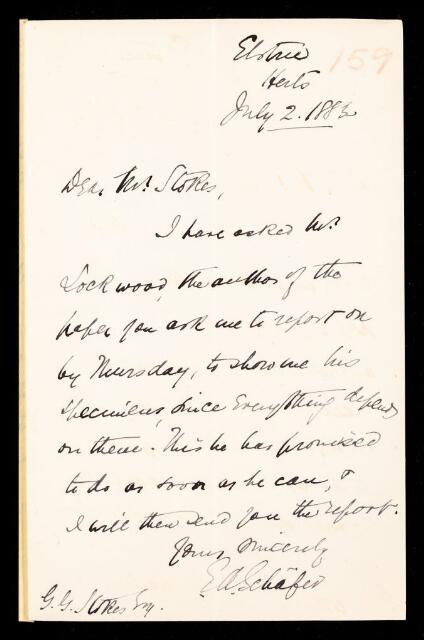 159
Elstree
Herts
July 2. 1883
Dear Mr. Stokes,
I have asked Mr.
Lockwood, the author of the
paper you ask me to report on
by Thursday, to show me his
specimens, since everything depends
on them. This he has promised
to do as soon as he can, &
I will then send you the report.
Yours sincerely
E A. Schäfer
G. G. Stokes Esq.